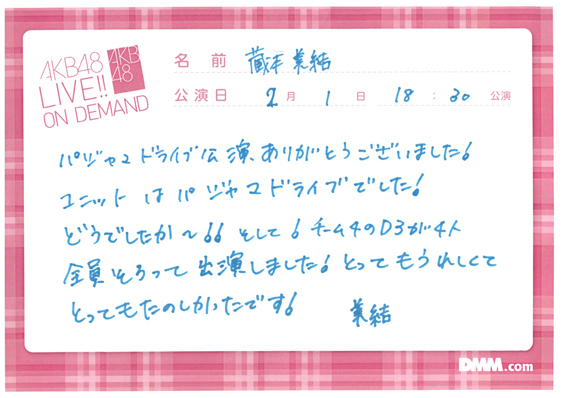 AKB48
LIVE!!
ON DEMAND
AKB
48
名前 蔵本美結
公演日 2月 1日 18:30 公演
パジャマドライブ公演、ありがとうございました!
ユニットはパジャマドライブでした!
どうでしたか〜!! そして! チーム4のD3が4人
全員そろって出演しました! とってもうれしくて
とってもたのしかったです!
美結
DMM.com